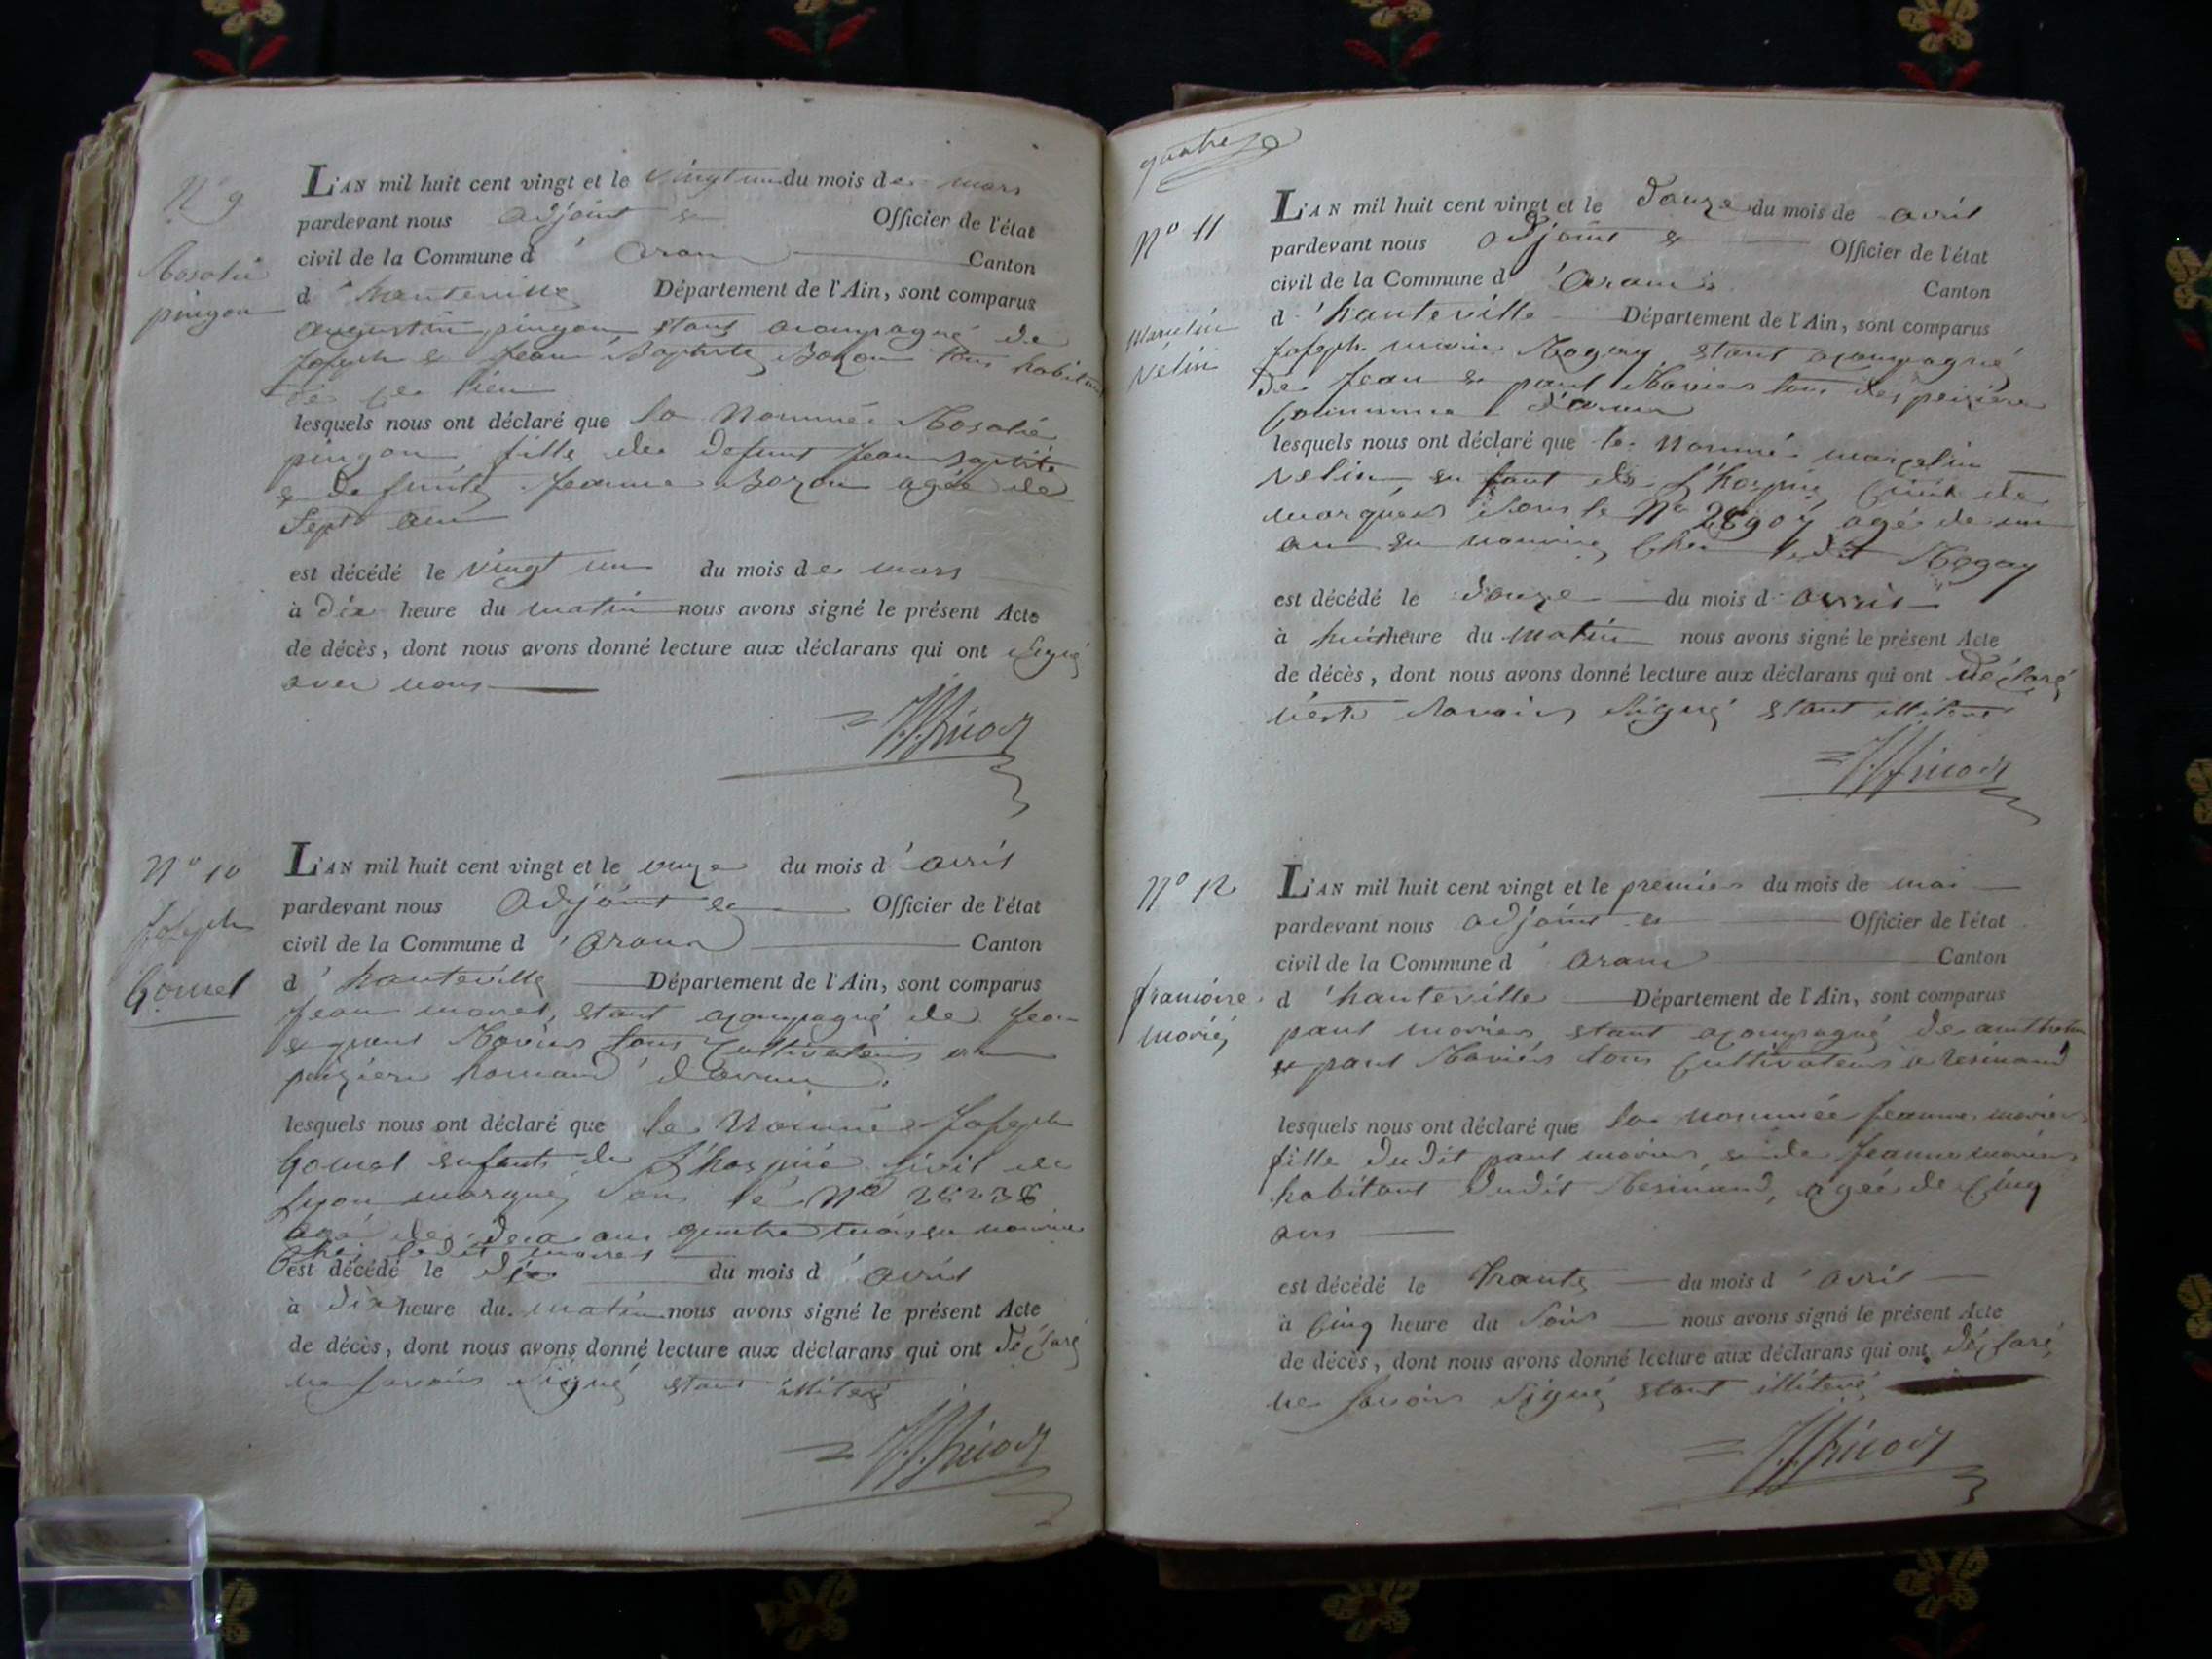 N° 9
Rosalie
pingon
L'AN mil huit cent vingt et le vingt un du mois de mars
pardevant nous adjoint & Officier de l'état
civil de la Commune d' aranc Canton
d' hauteville Département de l'Ain, sont comparus
augustin pingon, étant acompagné de
Joseph & Jean Baptiste Bozon tous habitans
de ce lieu
lesquels nous ont déclaré que la nommée Rosalie
pingon fille de defunt Jean Baptiste
& defunte Jeanne Bozon agée de
Sept ans
est décédé le vingt un du mois de mars
à dix heure du matin nous avons signé le présent Acte
de décès, dont nous avons donné lecture aux déclarans qui ont signé
avec nous
N° 10
Joseph
Gomel
L'AN mil huit cent vingt et le onze du mois d' avril
pardevant nous adjoint & Officier de l'état
civil de la Commune d' aranc Canton
d' hauteville Département de l'Ain, sont comparus
Jean étant acompagné de Jean
& paul tous Cultivateurs
d'aranc
lesquels nous ont déclaré que le nommé Joseph
Gomel enfant de L'hospice Civil de
Lyon marqué Sous le N° 28238
agé de deux ans quatre mois en nourrice
Chez ledit
est décédé le dix du mois d' avril
à dix heure du matin nous avons signé le présent Acte
de décès, dont nous avons donné lecture aux déclarans qui ont déclaré
ne savoir signé étant illiteré
quatre
N° 11
Marcelin
Velin
L'AN mil huit cent vingt et le douze du mois de avril
pardevant nous adjoint & Officier de l'état
civil de la Commune d' aranc Canton
d' hauteville Département de l'Ain, sont comparus
Joseph marie Mogay étant acompagné
de Jean & paul tous de
Commune d'aranc
lesquels nous ont déclaré que le nommé marcelin
velin, en fant de L'hospice Civil de
marqué Sous le N° agé de un
an en nourrice Chez ledit Mogay
est décédé le douze du mois d' avril
à huit heure du matin nous avons signé le présent Acte
de décès, dont nous avons donné lecture aux déclarans qui ont déclaré
Savoir signé étant illiteré
N° 12
L'AN mil huit cent vingt et le premier du mois de mai
pardevant nous adjoint & Officier de l'état
civil de la Commune d' aranc Canton
d' hauteville Département de l'Ain, sont comparus
paul étant acompagné de
& paul tous Cultivateurs a Resinand
lesquels nous ont déclaré que la nommée Jeanne
fille dudit paul Jeanne
habitant dudit Resinand, agée de Cinq
ans
est décédé le trante du mois d' avril
à Cinq heure du Soir nous avons signé le présent Acte
de décès, dont nous avons donné lecture aux déclarans qui ont déclaré
ne savoir signé étant illiteré